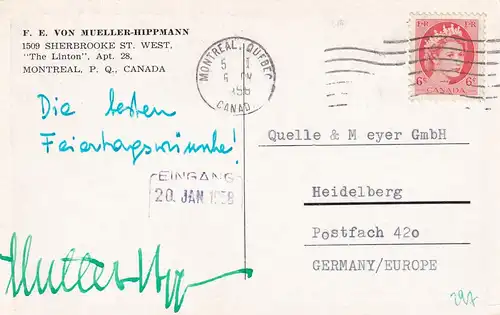 F. E. VON MUELLER-HIPPMANN
1509 SHERBROOKE ST. WEST,
"The Linton", Apt. 28,
MONTREAL, P. Q., CANADA
MONTREAL, QUEBEC
5 I
CANADA
E II R E II R
6¢ 6¢
CANADA
Die besten
Feiertagswünsche!
EINGANG
20. JAN 1958
Quelle & M eyer GmbH
Heidelberg
Postfach 42o
GERMANY/EUROPE
297